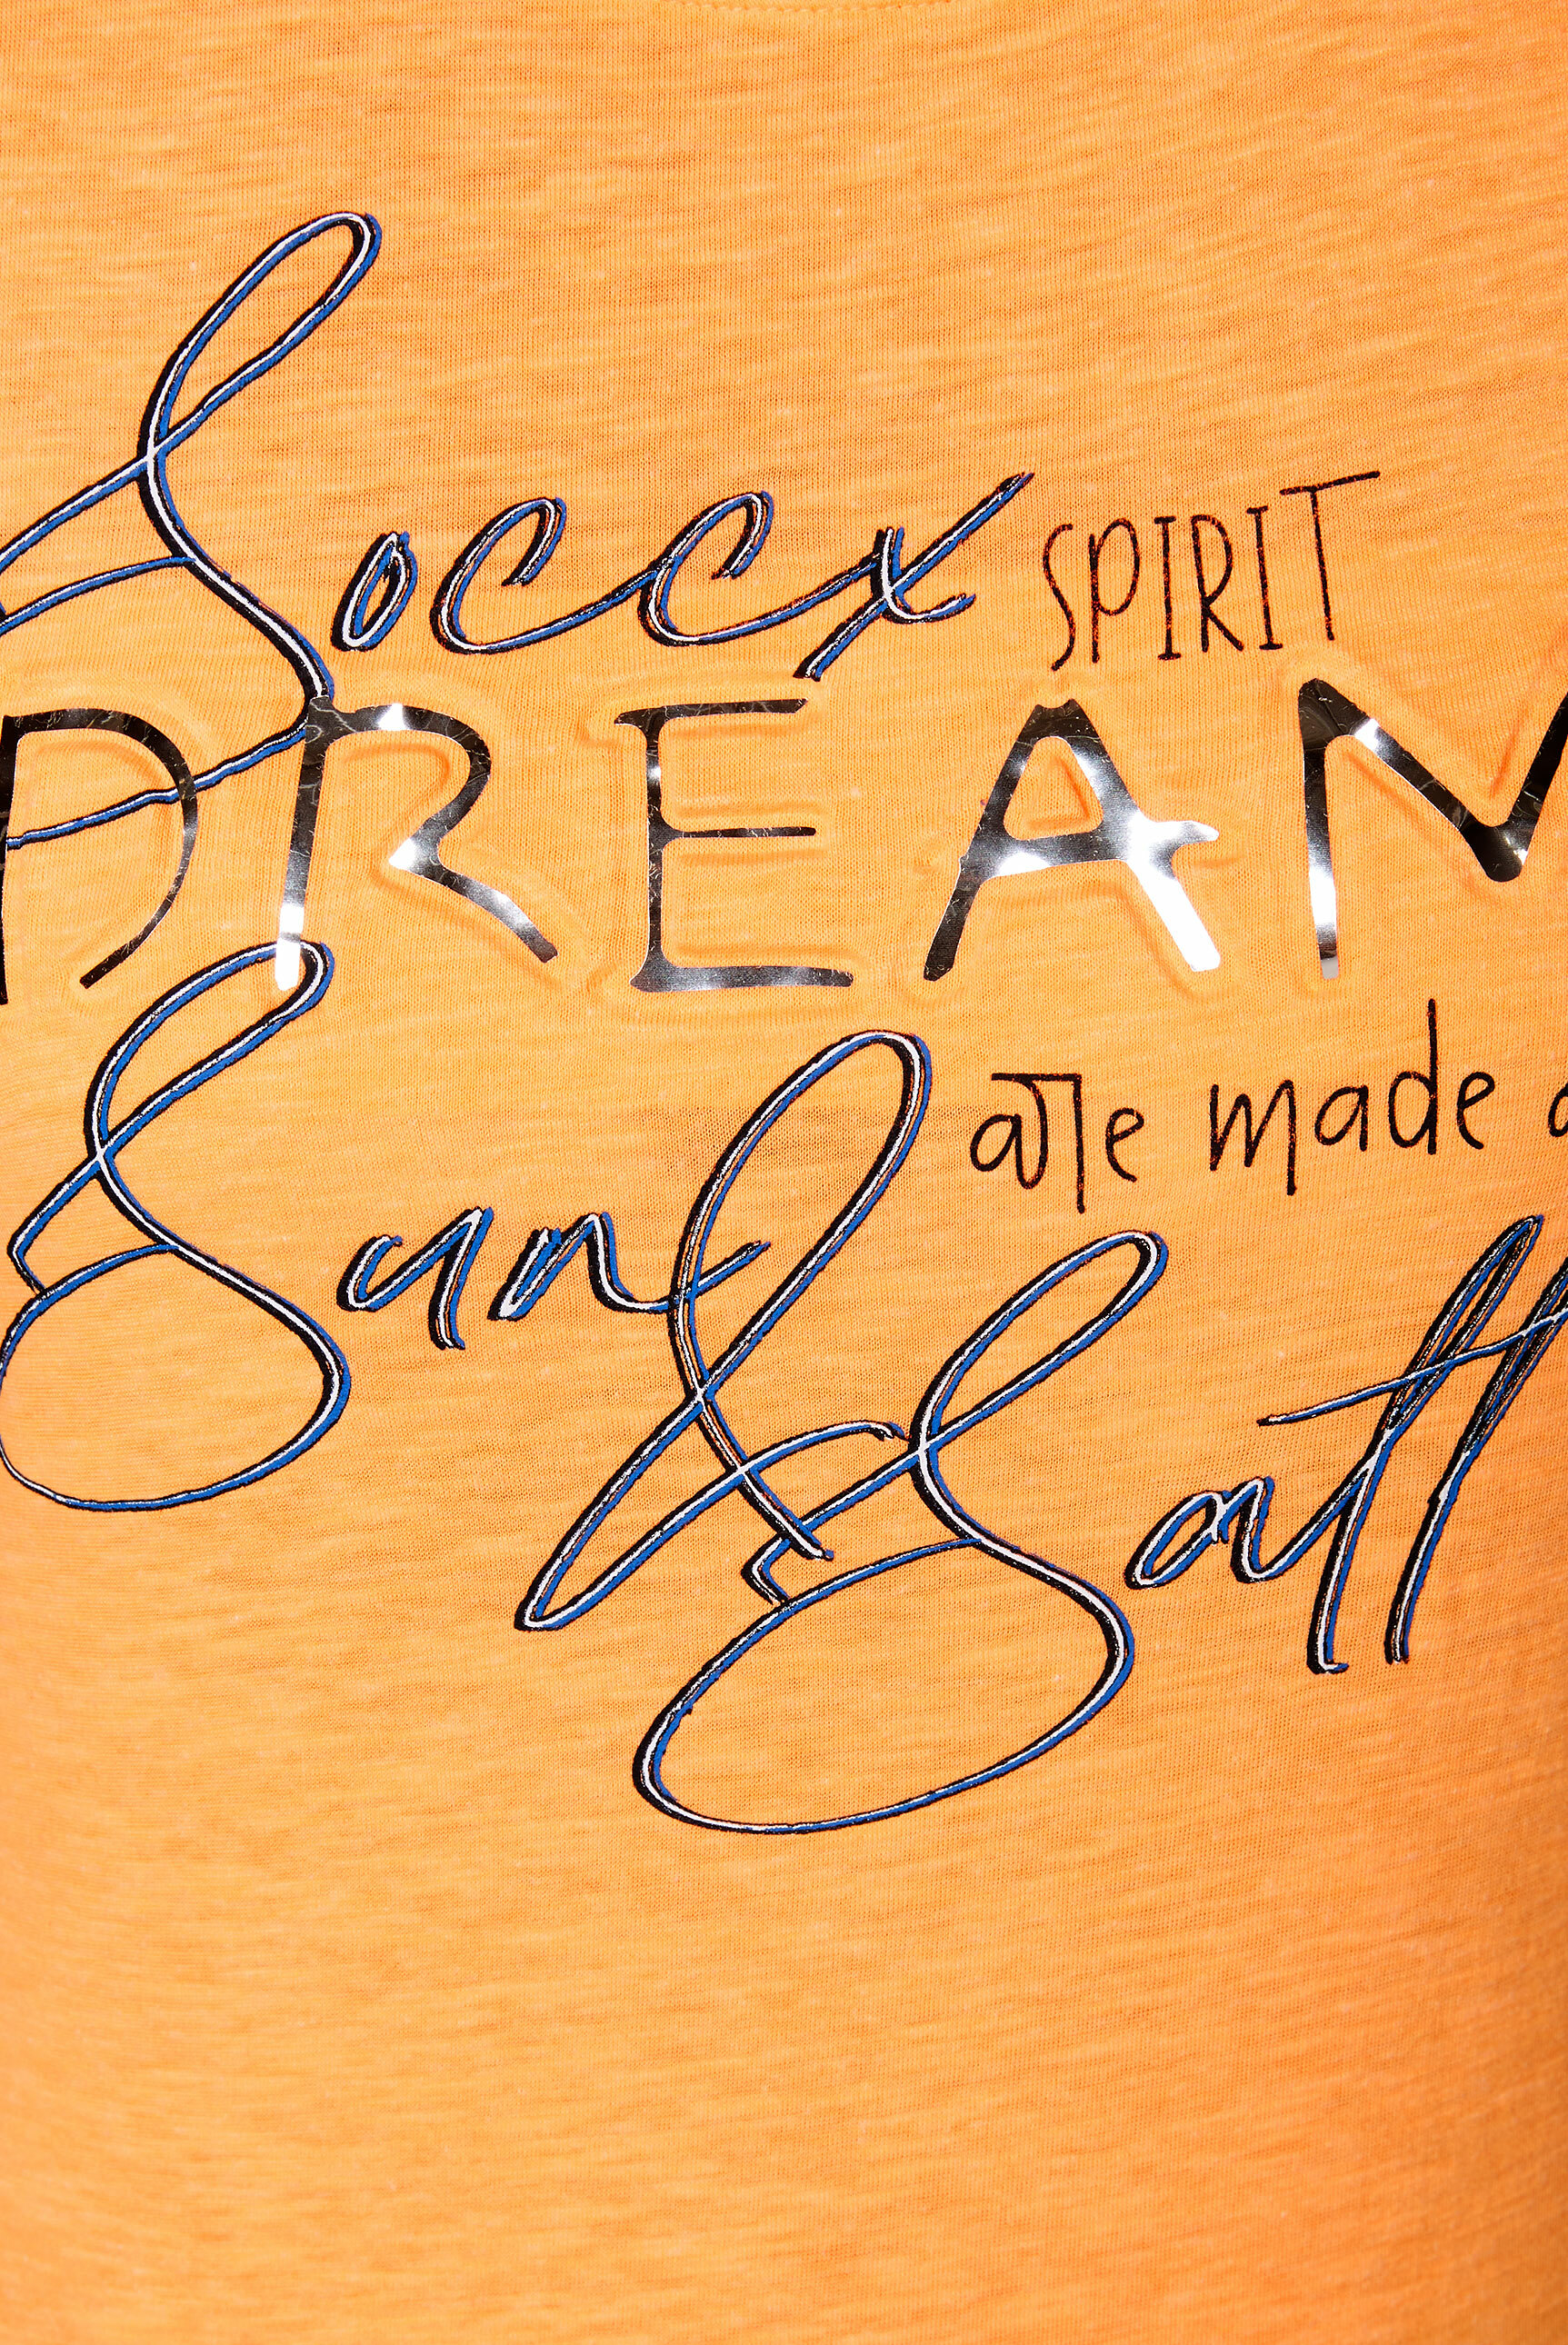 Soccx SPIRIT
DREAM
are made
Sun & Salt